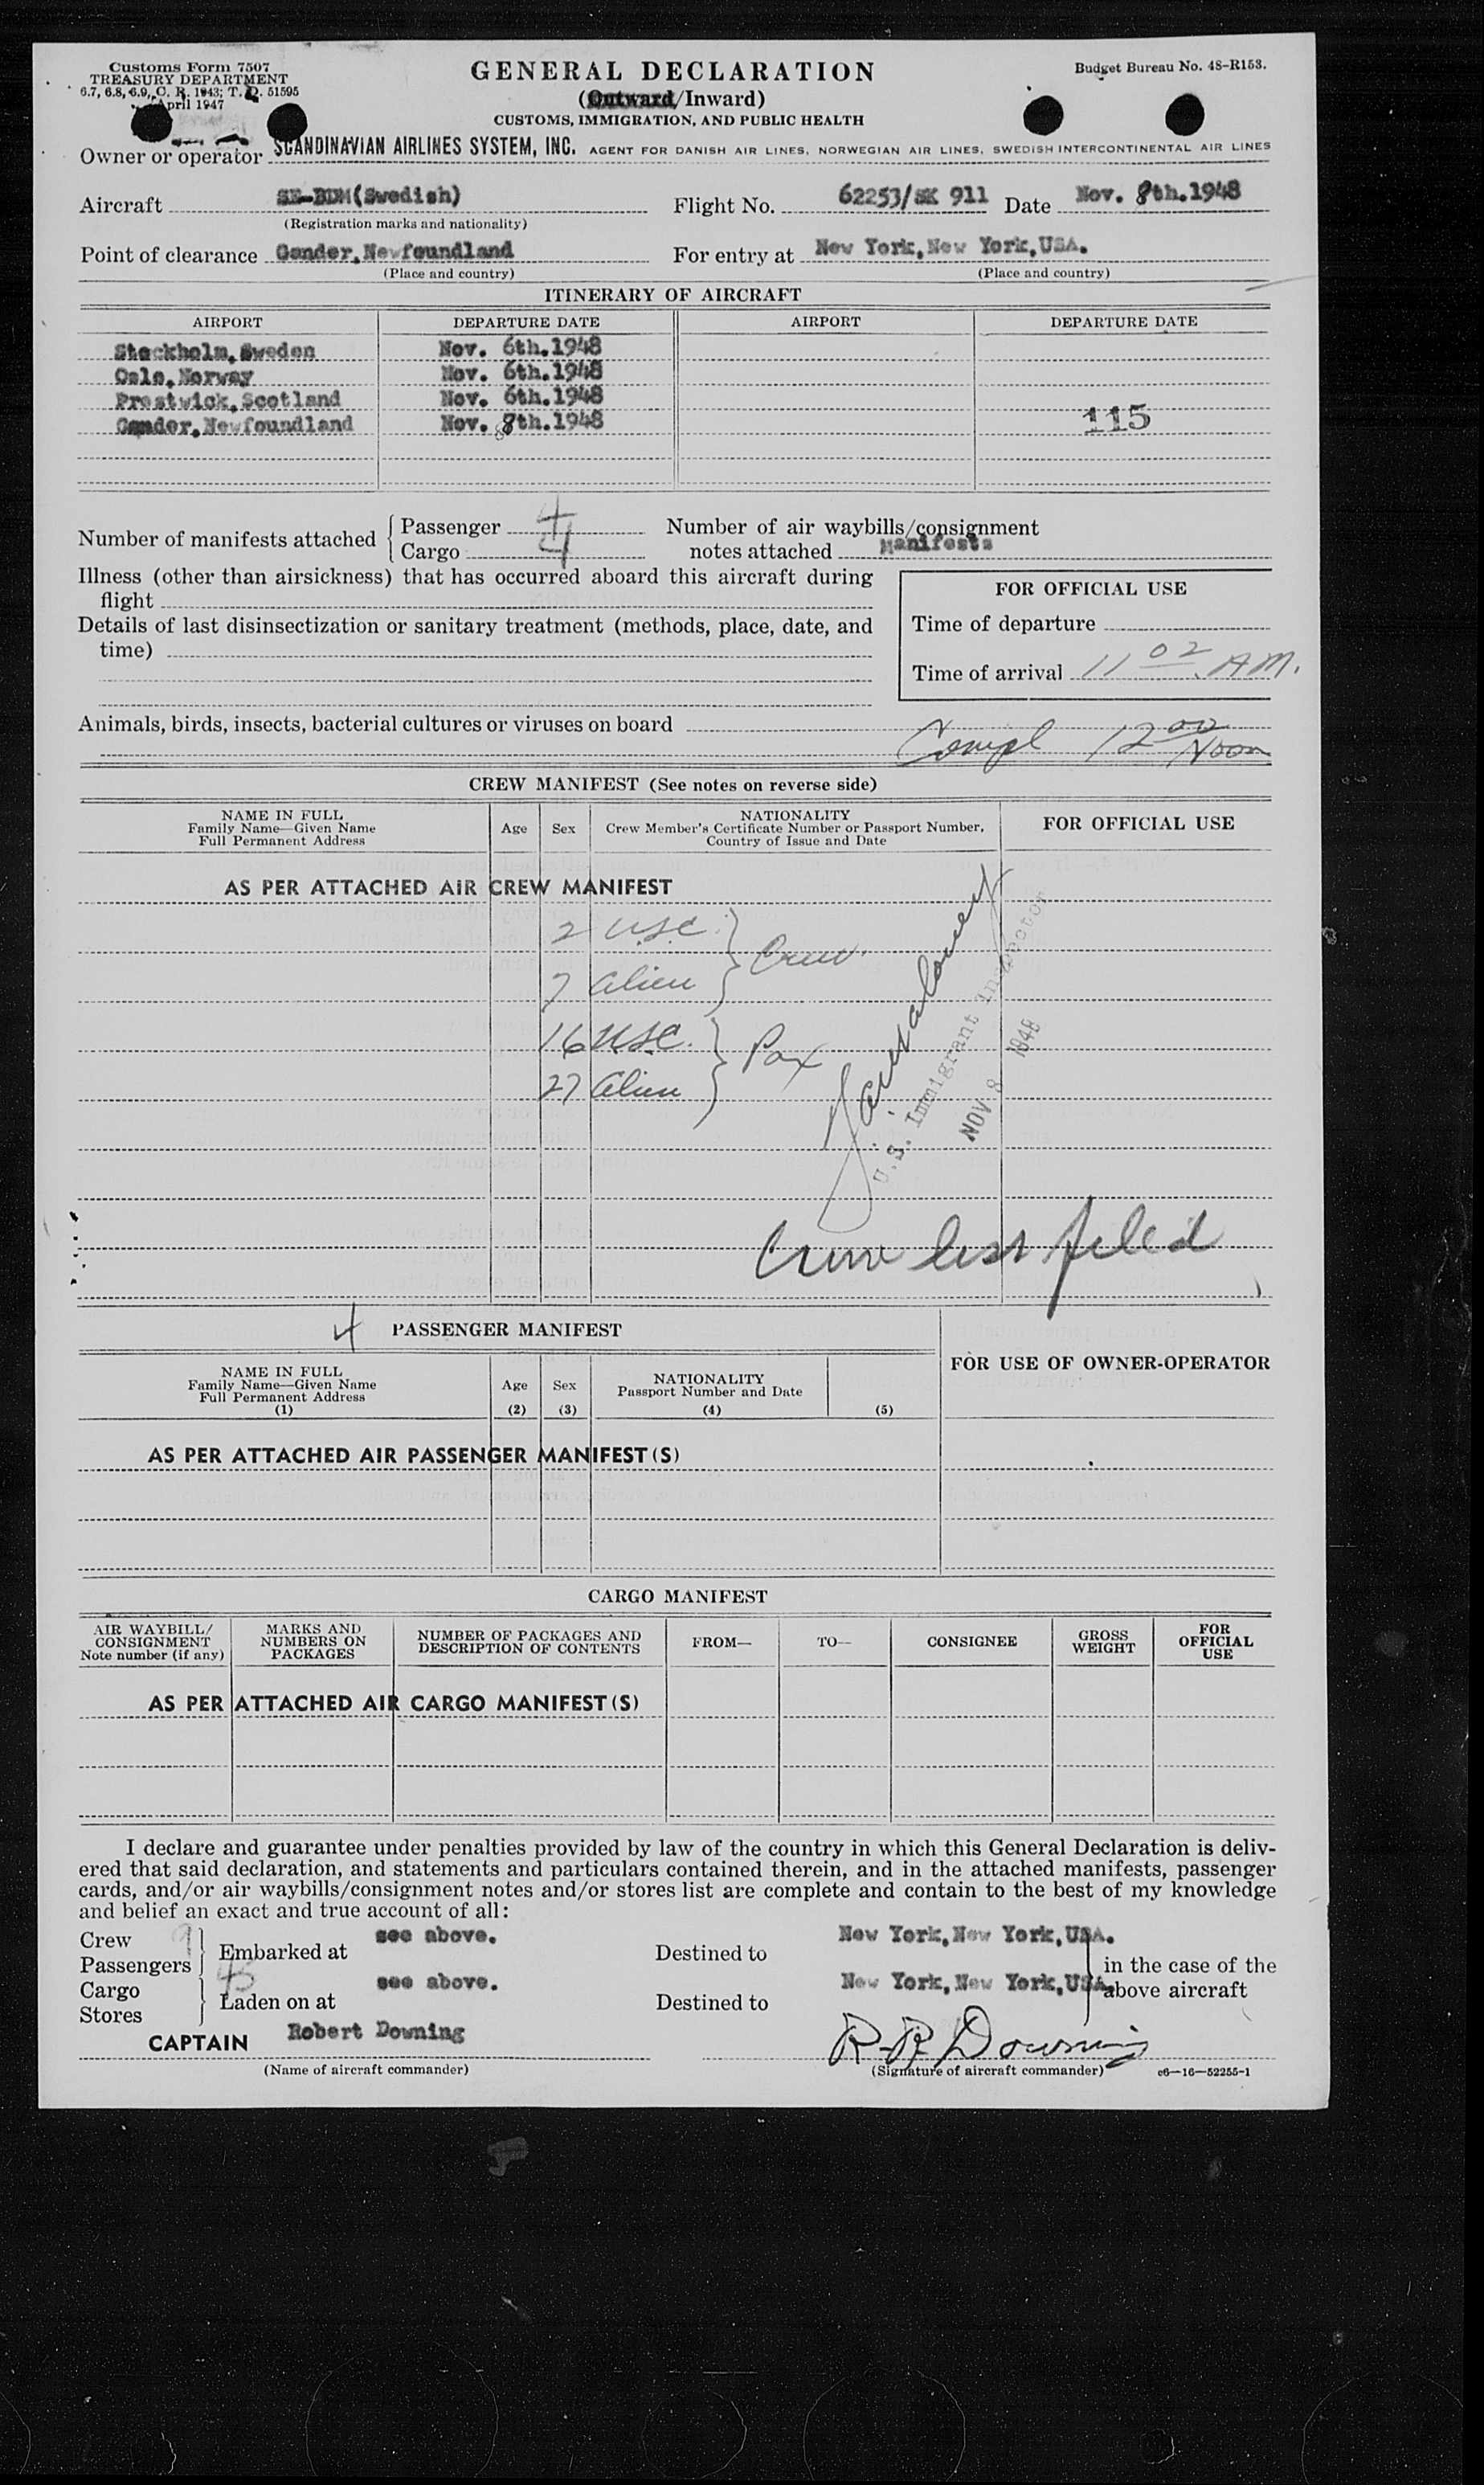 Customs Form 7507
TREASURY DEPARTMENT
6.7, 6.8, 6.9, C. R. 1943; T. D. 51595
April 1947
GENERAL DECLARATION
(Outward/Inward)
CUSTOMS, IMMIGRATION, AND PUBLIC HEALTH
Budget Bureau No. 48-R153.
Owner or operator SCANDINAVIAN AIRLINES SYSTEM, INC. AGENT FOR DANISH AIR LINES, NORWEGIAN AIR LINES, SWEDISH INTERCONTINENTAL AIR LINES
Aircraft SE-BDM(Swedish) Flight No. 62253/SK 911 Date Nov. 8th.1948
(Registration marks and nationality)
Point of clearance Gander,Newfoundland For entry at New York,New York,USA.
(Place and country) (Place and country)
ITINERARY OF AIRCRAFT
AIRPORT DEPARTURE DATE AIRPORT DEPARTURE DATE
Stockholm,Sweden Nov. 6th.1948
Oslo,Norway Nov. 6th.1948
Prestwick,Scotland Nov. 6th.1948
Gander,Newfoundland Nov. 8th.1948 115
Number of manifests attached { Passenger 4 Number of air waybills/consignment
Cargo 4 notes attached Manifests
Illness (other than airsickness) that has occurred aboard this aircraft during
flight
FOR OFFICIAL USE
Details of last disinsectization or sanitary treatment (methods, place, date, and
time)
Time of departure
Time of arrival 11 02 AM.
Animals, birds, insects, bacterial cultures or viruses on board
Compl 12 00 Noon
CREW MANIFEST (See notes on reverse side)
NAME IN FULL
Family Name—Given Name
Full Permanent Address
Age Sex
NATIONALITY
Crew Member's Certificate Number or Passport Number,
Country of Issue and Date
FOR OFFICIAL USE
AS PER ATTACHED AIR CREW MANIFEST
2 USC. } Crew.
7 alien
16 USC. } Pax
27 alien
U.S. Immigrant Inspector
NOV 8 1948
Crew list filed
4 PASSENGER MANIFEST
NAME IN FULL
Family Name—Given Name
Full Permanent Address
(1)
Age
(2)
Sex
(3)
NATIONALITY
Passport Number and Date
(4)
(5)
FOR USE OF OWNER-OPERATOR
AS PER ATTACHED AIR PASSENGER MANIFEST(S)
CARGO MANIFEST
AIR WAYBILL/
CONSIGNMENT
Note number (if any)
MARKS AND
NUMBERS ON
PACKAGES
NUMBER OF PACKAGES AND
DESCRIPTION OF CONTENTS
FROM—
TO—
CONSIGNEE
GROSS
WEIGHT
FOR
OFFICIAL
USE
AS PER ATTACHED AIR CARGO MANIFEST(S)
I declare and guarantee under penalties provided by law of the country in which this General Declaration is deliv-
ered that said declaration, and statements and particulars contained therein, and in the attached manifests, passenger
cards, and/or air waybills/consignment notes and/or stores list are complete and contain to the best of my knowledge
and belief an exact and true account of all:
Crew 9 } Embarked at see above. Destined to New York,New York,USA.
Passengers 43 in the case of the
Cargo } Laden on at see above. Destined to New York,New York,USA. above aircraft
Stores
CAPTAIN Robert Downing R R Downing
(Name of aircraft commander) (Signature of aircraft commander) c6—16—52255-1